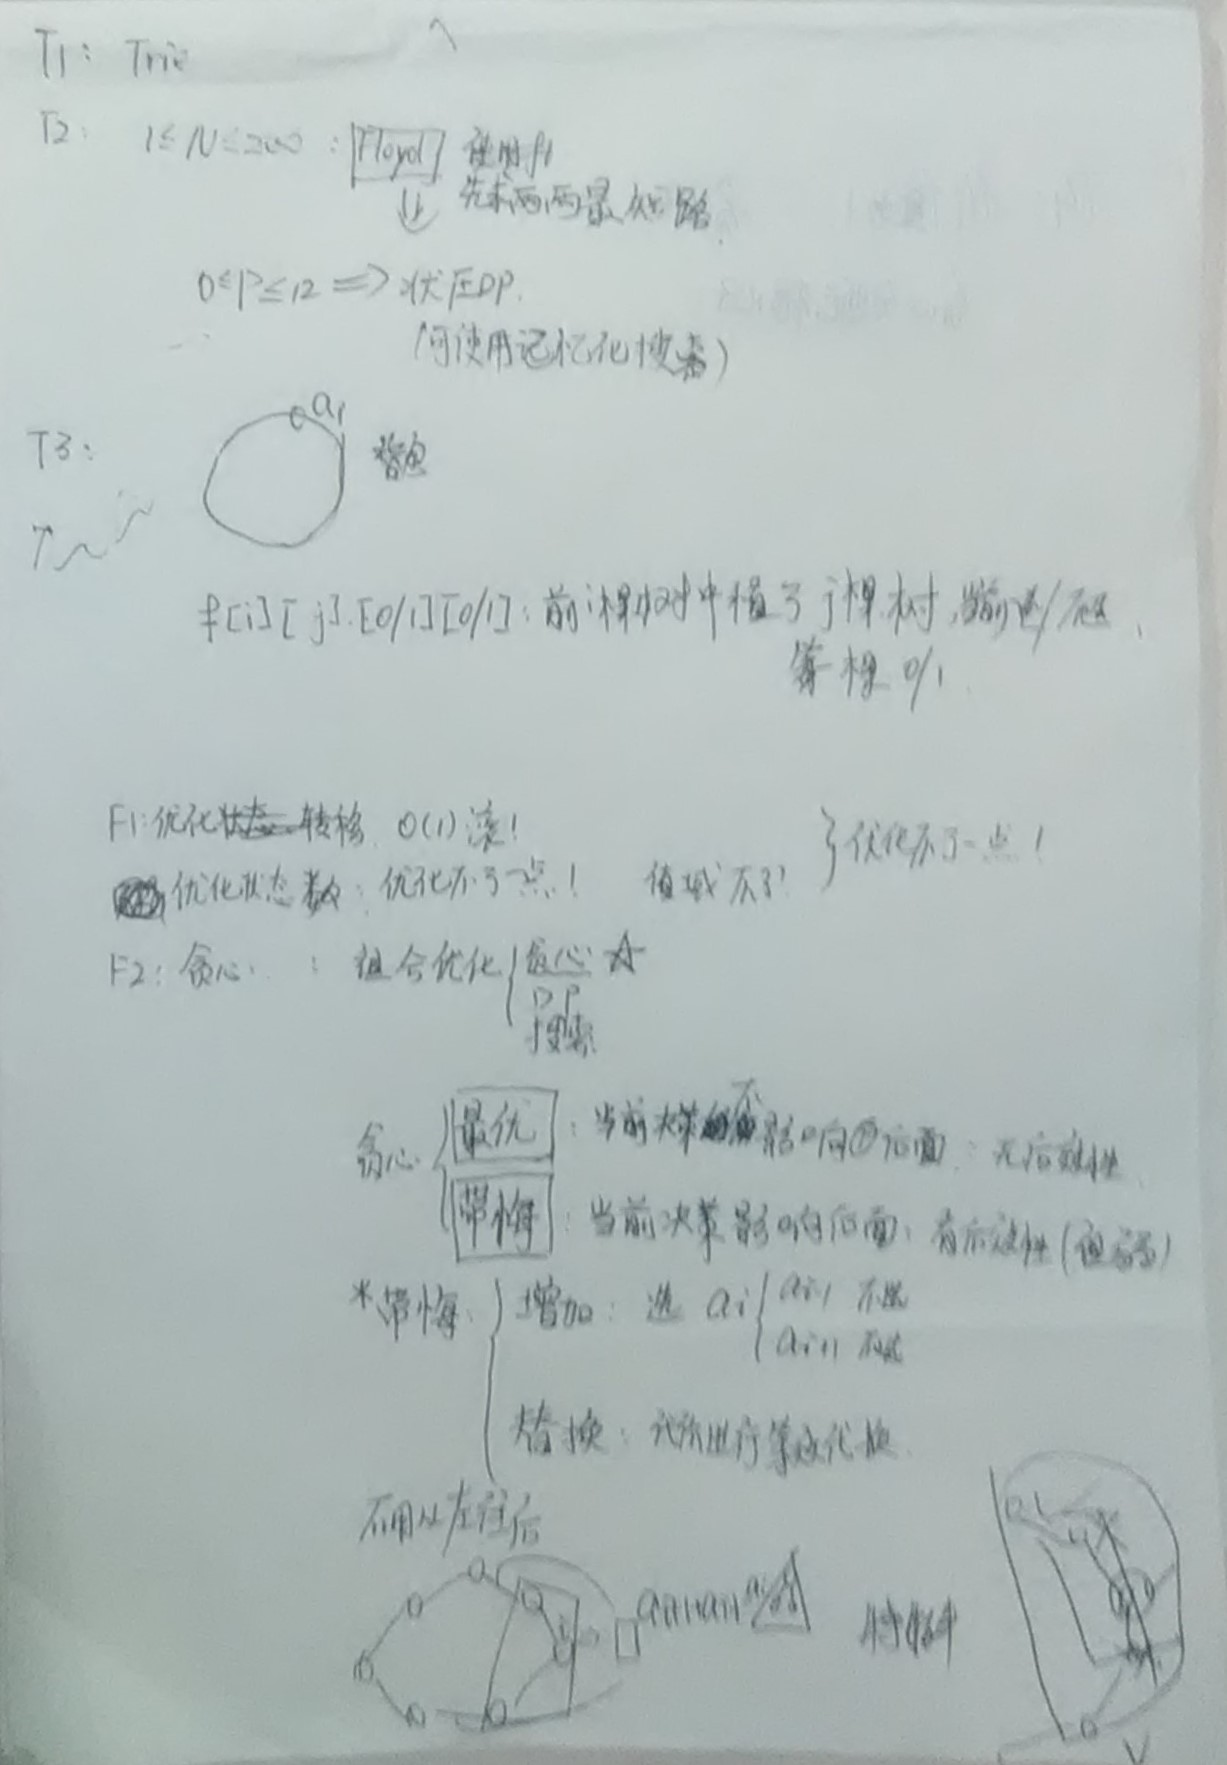 T1: Trie
T2: 1≤N≤200 : Floyd 使用
先求两两最短路
0≤P≤12 => 状压DP.
(可使用记忆化搜索)
a1
T3:
f[i][j].[0/1][0/1]: 前i棵树中植了j棵树, 当前选/不选,
第 棵 0/1.
F1: 优化 转移 O(1) 滚!
优化状态数: 优化不了一点! 值域不了! } 优化不了一点!
F2: 贪心 : 组合优化 { 贪心 ☆
DP
搜索
贪心 { 最优 : 当前决策 不影响 后面: 无后效性
带悔 : 当前决策影响后面: 有后效性
*带悔 { 增加: 选 ai { ai-1 不选
ai+1 不选
替换: 进行等效代换.
不用从左往后